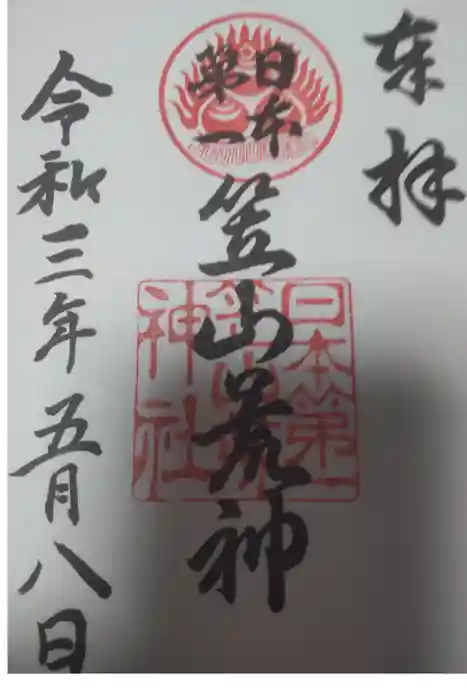 奉拝
日本
第一
笠山荒神
日本第一
笠山荒
神社
令和三年五月八日